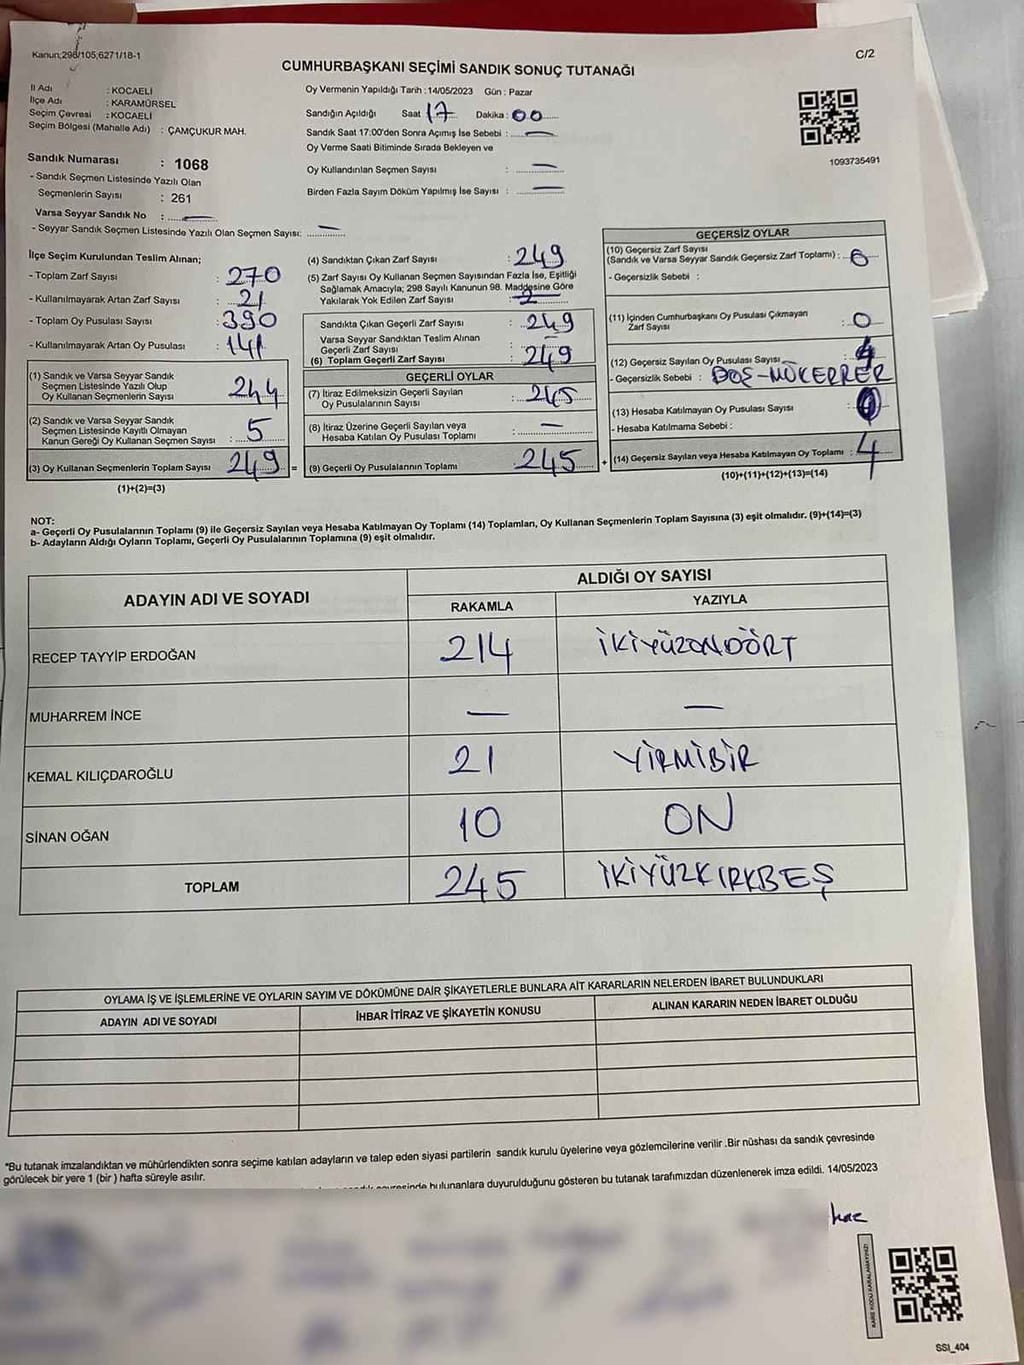 Kanun;298/105,6271/18-1
C/2
CUMHURBAŞKANI SEÇİMİ SANDIK SONUÇ TUTANAĞI
İl Adı : KOCAELİ
İlçe Adı : KARAMÜRSEL
Seçim Çevresi : KOCAELİ
Seçim Bölgesi (Mahalle Adı) : ÇAMÇUKUR MAH.
Sandık Numarası : 1068
- Sandık Seçmen Listesinde Yazılı Olan
Seçmenlerin Sayısı : 261
Varsa Seyyar Sandık No : —
- Seyyar Sandık Seçmen Listesinde Yazılı Olan Seçmen Sayısı: —
Oy Vermenin Yapıldığı Tarih : 14/05/2023 Gün : Pazar
Sandığın Açıldığı Saat 17 Dakika : 00
Sandık Saat 17:00'den Sonra Açımış İse Sebebi : —
Oy Verme Saati Bitiminde Sırada Bekleyen ve
Oy Kullandırılan Seçmen Sayısı : —
Birden Fazla Sayım Döküm Yapılmış İse Sayısı : —
1093735491
İlçe Seçim Kurulundan Teslim Alınan;
- Toplam Zarf Sayısı : 270
- Kullanılmayarak Artan Zarf Sayısı : 21
- Toplam Oy Pusulası Sayısı : 390
- Kullanılmayarak Artan Oy Pusulası : 141
(1) Sandık ve Varsa Seyyar Sandık
Seçmen Listesinde Yazılı Olup
Oy Kullanan Seçmenlerin Sayısı : 244
(2) Sandık ve Varsa Seyyar Sandık
Seçmen Listesinde Kayıtlı Olmayan
Kanun Gereği Oy Kullanan Seçmen Sayısı : 5
(3) Oy Kullanan Seçmenlerin Toplam Sayısı : 249 =
(1)+(2)=(3)
(4) Sandıktan Çıkan Zarf Sayısı : 249
(5) Zarf Sayısı Oy Kullanan Seçmen Sayısından Fazla İse, Eşitliği
Sağlamak Amacıyla; 298 Sayılı Kanunun 98. Maddesine Göre
Yakılarak Yok Edilen Zarf Sayısı
Sandıkta Çıkan Geçerli Zarf Sayısı : 249
Varsa Seyyar Sandıktan Teslim Alınan
Geçerli Zarf Sayısı : —
(6) Toplam Geçerli Zarf Sayısı : 249
GEÇERLİ OYLAR
(7) İtiraz Edilmeksizin Geçerli Sayılan
Oy Pusulalarının Sayısı : 245
(8) İtiraz Üzerine Geçerli Sayılan veya
Hesaba Katılan Oy Pusulası Toplamı : —
(9) Geçerli Oy Pusulalarının Toplamı : 245 +
GEÇERSİZ OYLAR
(10) Geçersiz Zarf Sayısı
(Sandık ve Varsa Seyyar Sandık Geçersiz Zarf Toplamı) : 0
- Geçersizlik Sebebi :
(11) İçinden Cumhurbaşkanı Oy Pusulası Çıkmayan
Zarf Sayısı : 0
(12) Geçersiz Sayılan Oy Pusulası Sayısı : 4
- Geçersizlik Sebebi : BOŞ-MÜKERRER
(13) Hesaba Katılmayan Oy Pusulası Sayısı :
- Hesaba Katılmama Sebebi :
(14) Geçersiz Sayılan veya Hesaba Katılmayan Oy Toplamı : 4
(10)+(11)+(12)+(13)=(14)
NOT:
a- Geçerli Oy Pusulalarının Toplamı (9) ile Geçersiz Sayılan veya Hesaba Katılmayan Oy Toplamı (14) Toplamları, Oy Kullanan Seçmenlerin Toplam Sayısına (3) eşit olmalıdır. (9)+(14)=(3)
b- Adayların Aldığı Oyların Toplamı, Geçerli Oy Pusulalarının Toplamına (9) eşit olmalıdır.
ADAYIN ADI VE SOYADI
ALDIĞI OY SAYISI
RAKAMLA YAZIYLA
RECEP TAYYİP ERDOĞAN 214 İKİYÜZONDÖRT
MUHARREM İNCE — —
KEMAL KILIÇDAROĞLU 21 YİRMİBİR
SİNAN OĞAN 10 ON
TOPLAM 245 İKİYÜZKIRKBEŞ
OYLAMA İŞ VE İŞLEMLERİNE VE OYLARIN SAYIM VE DÖKÜMÜNE DAİR ŞİKAYETLERLE BUNLARA AİT KARARLARIN NELERDEN İBARET BULUNDUKLARI
ADAYIN ADI VE SOYADI İHBAR İTİRAZ VE ŞİKAYETİN KONUSU ALINAN KARARIN NEDEN İBARET OLDUĞU
*Bu tutanak imzalandıktan ve mühürlendikten sonra seçime katılan adayların ve talep eden siyasi partilerin sandık kurulu üyelerine veya gözlemcilerine verilir .Bir nüshası da sandık çevresinde
görülecek bir yere 1 (bir ) hafta süreyle asılır.
bulunanlara duyurulduğunu gösteren bu tutanak tarafımızdan düzenlenerek imza edildi. 14/05/2023
KARE KODU KARALAMAYINIZ!
SSI_404